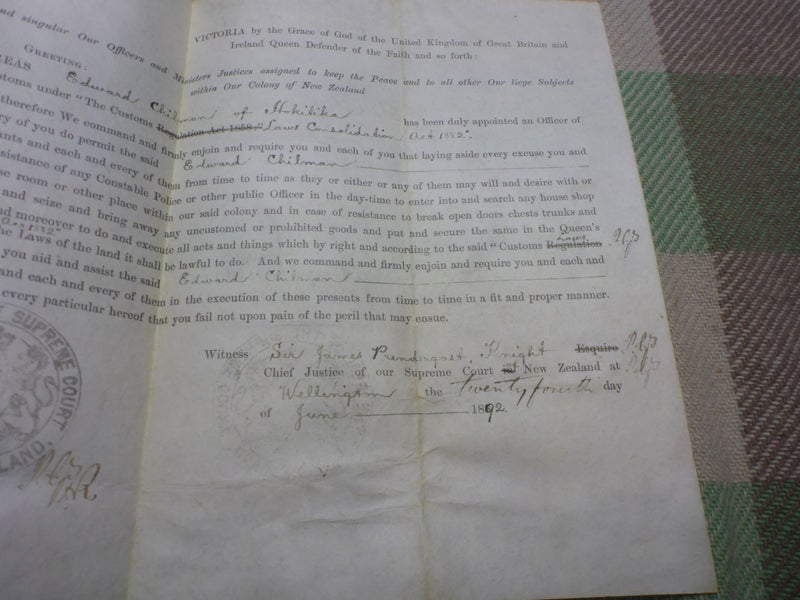 VICTORIA by the Grace of God of the United Kingdom of Great Britain and
Ireland Queen Defender of the Faith and so forth:
nd singular Our Officers and Ministers Justices assigned to keep the Peace and to all other Our liege Subjects
within Our Colony of New Zealand
GREETING:
EAS Edward Chilman of Hokitika has been duly appointed an Officer of
toms under "The Customs Regulation Act 1858" Laws Consolidation Act 1882".
therefore We command and firmly enjoin and require you and each of you that laying aside every excuse you and
ry of you do permit the said Edward Chilman
ants and each and every of them from time to time as they or either or any of them may will and desire with or
sistance of any Constable Police or other public Officer in the day-time to enter into and search any house shop
se room or other place within our said colony and in case of resistance to break open doors chests trunks and
and seize and bring away any uncustomed or prohibited goods and put and secure the same in the Queen's
nd moreover to do and execute all acts and things which by right and according to the said "Customs Regulation Laws
Act 1882"
he Laws of the land it shall be lawful to do. And we command and firmly enjoin and require you and each and
you aid and assist the said Edward Chilman
and each and every of them in the execution of these presents from time to time in a fit and proper manner.
every particular hereof that you fail not upon pain of the peril that may ensue.
Witness Sir James Prendergast, Knight Esquire
Chief Justice of our Supreme Court of New Zealand at
Wellington the twenty fourth day
of June 1892.
SUPREME COURT
LAND.